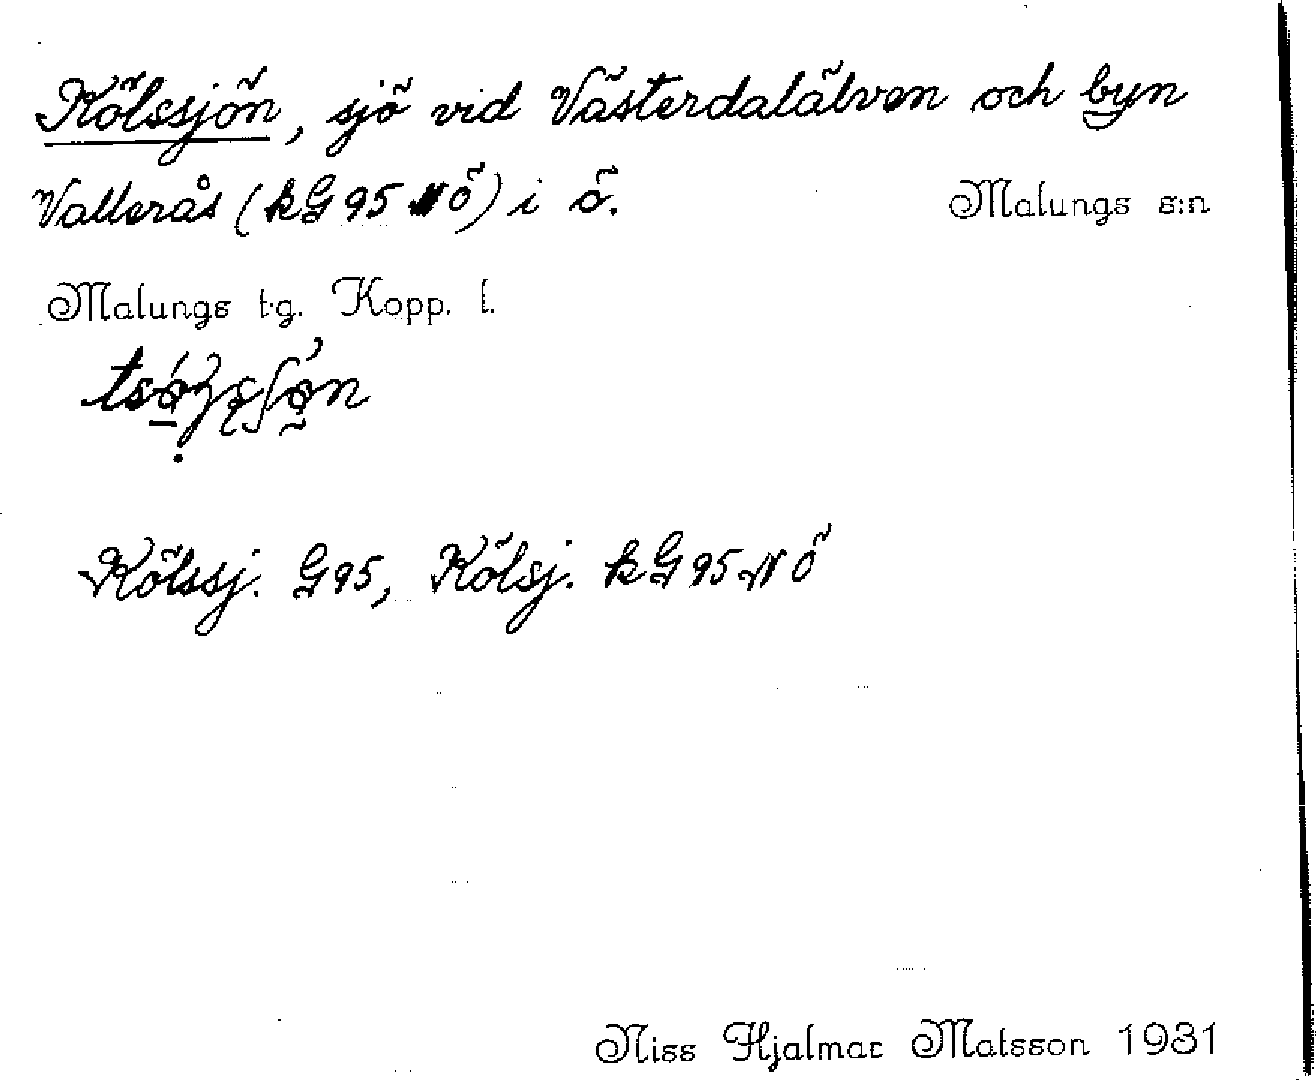 Kölssjön, sjö vid Västerdalälven och byn
Vallerås (kG95NÖ) i ö. Malungs s:n
Malungs tg. Kopp. l.
Kölssj. G95, Kölsj. kG95NÖ
Niss Hjalmar Matsson 1931